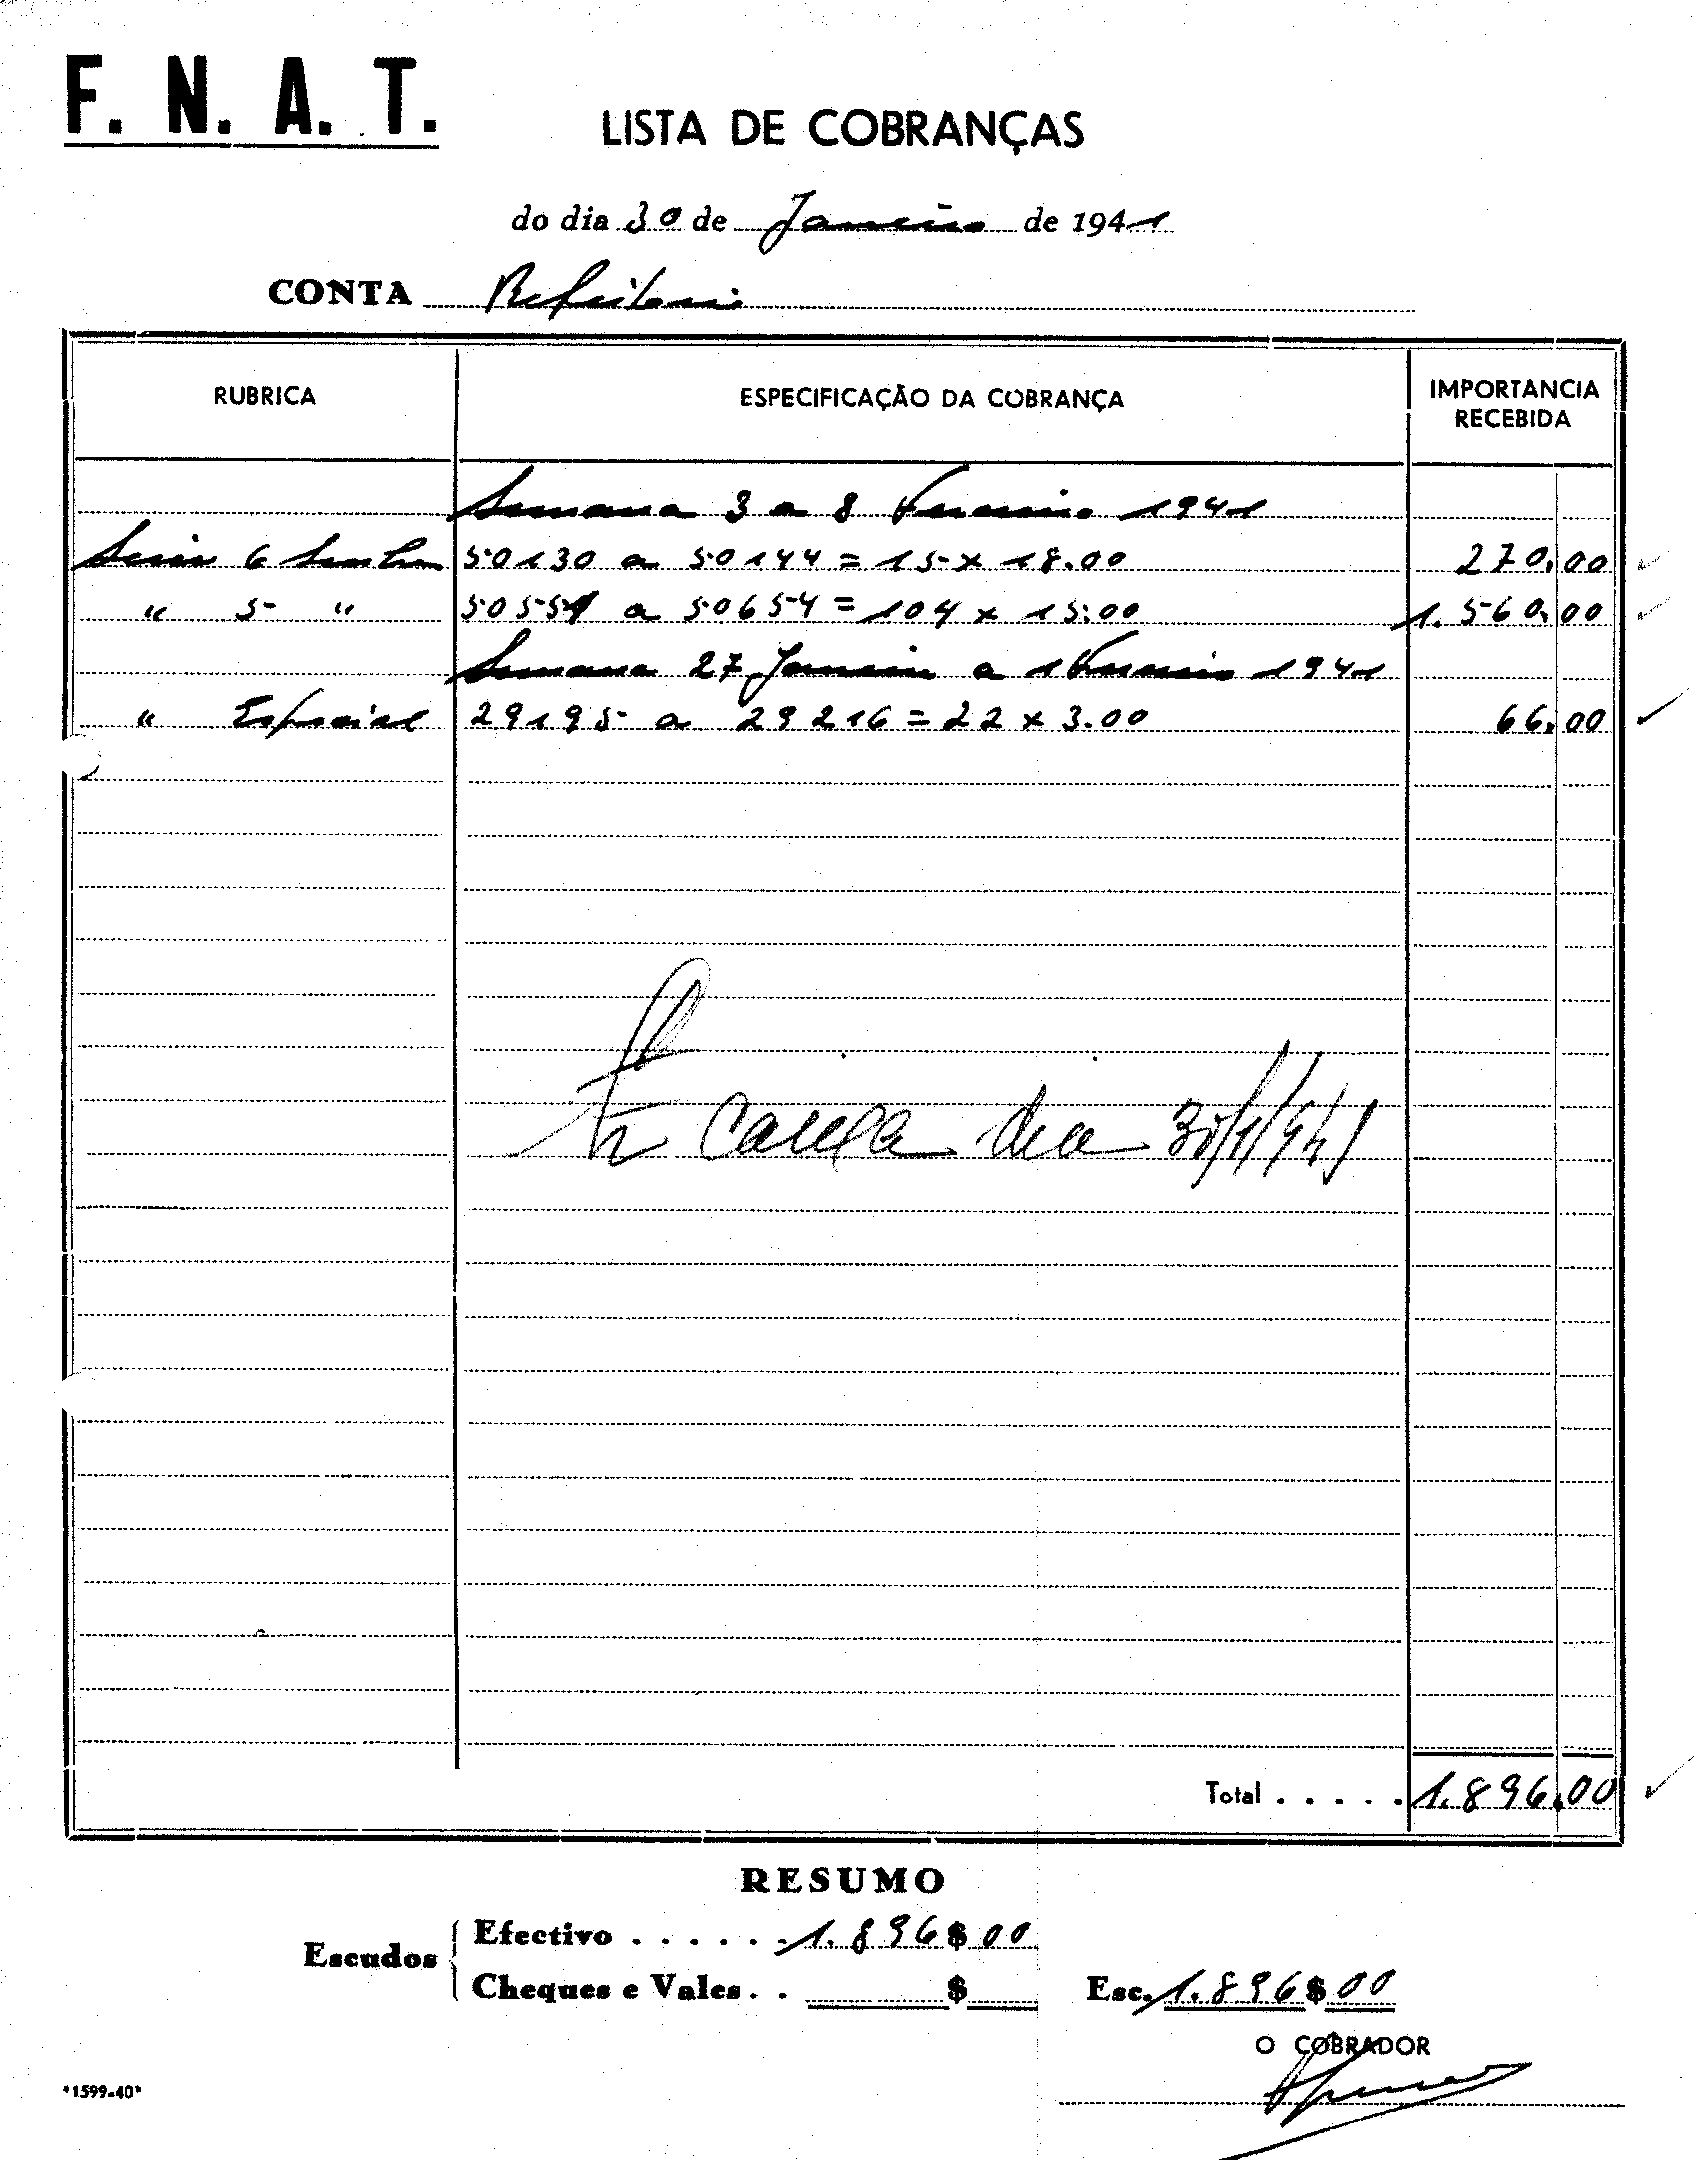 F. N. A. T.
LISTA DE COBRANÇAS
do dia 30 de Janeiro de 1941
CONTA Refeitorio
RUBRICA ESPECIFICAÇÃO DA COBRANÇA IMPORTANCIA RECEBIDA
Semana 3 a 8 Fevereiro 1941
Serie 6 Senhas 50130 a 50144 = 15 x 18.00 270.00
" 5 " 50551 a 50654 = 104 x 15.00 1.560.00
Semana 27 Janeiro a 1 Fevereiro 1941
" Especial 29195 a 29216 = 22 x 3.00 66.00
Caixa dia 30/1/941
Total . . . . . 1.896.00
RESUMO
Escudos Efectivo . . . . . . 1.896$00
Cheques e Vales . . $ Esc. 1.896$00
O COBRADOR
"1599-40"